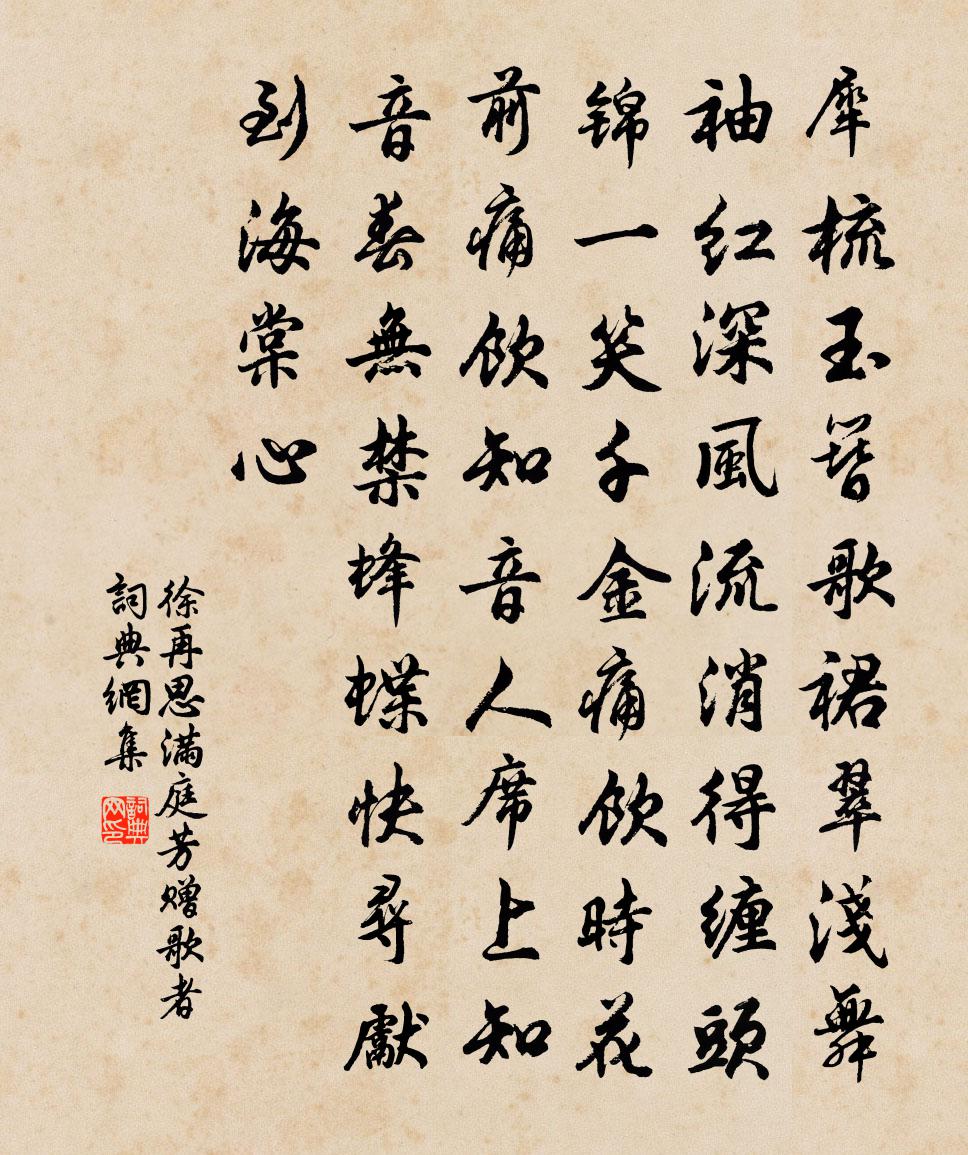 犀梳玉簪歌裙翠淺舞
袖红深風流消得缠頭
锦一笑千金痛飲時花
前痛飲知音人席上知
音春無禁蜂蝶快尋獻
到海棠心
徐再思滿庭芳赠歌者
詞典網集
詞典网印